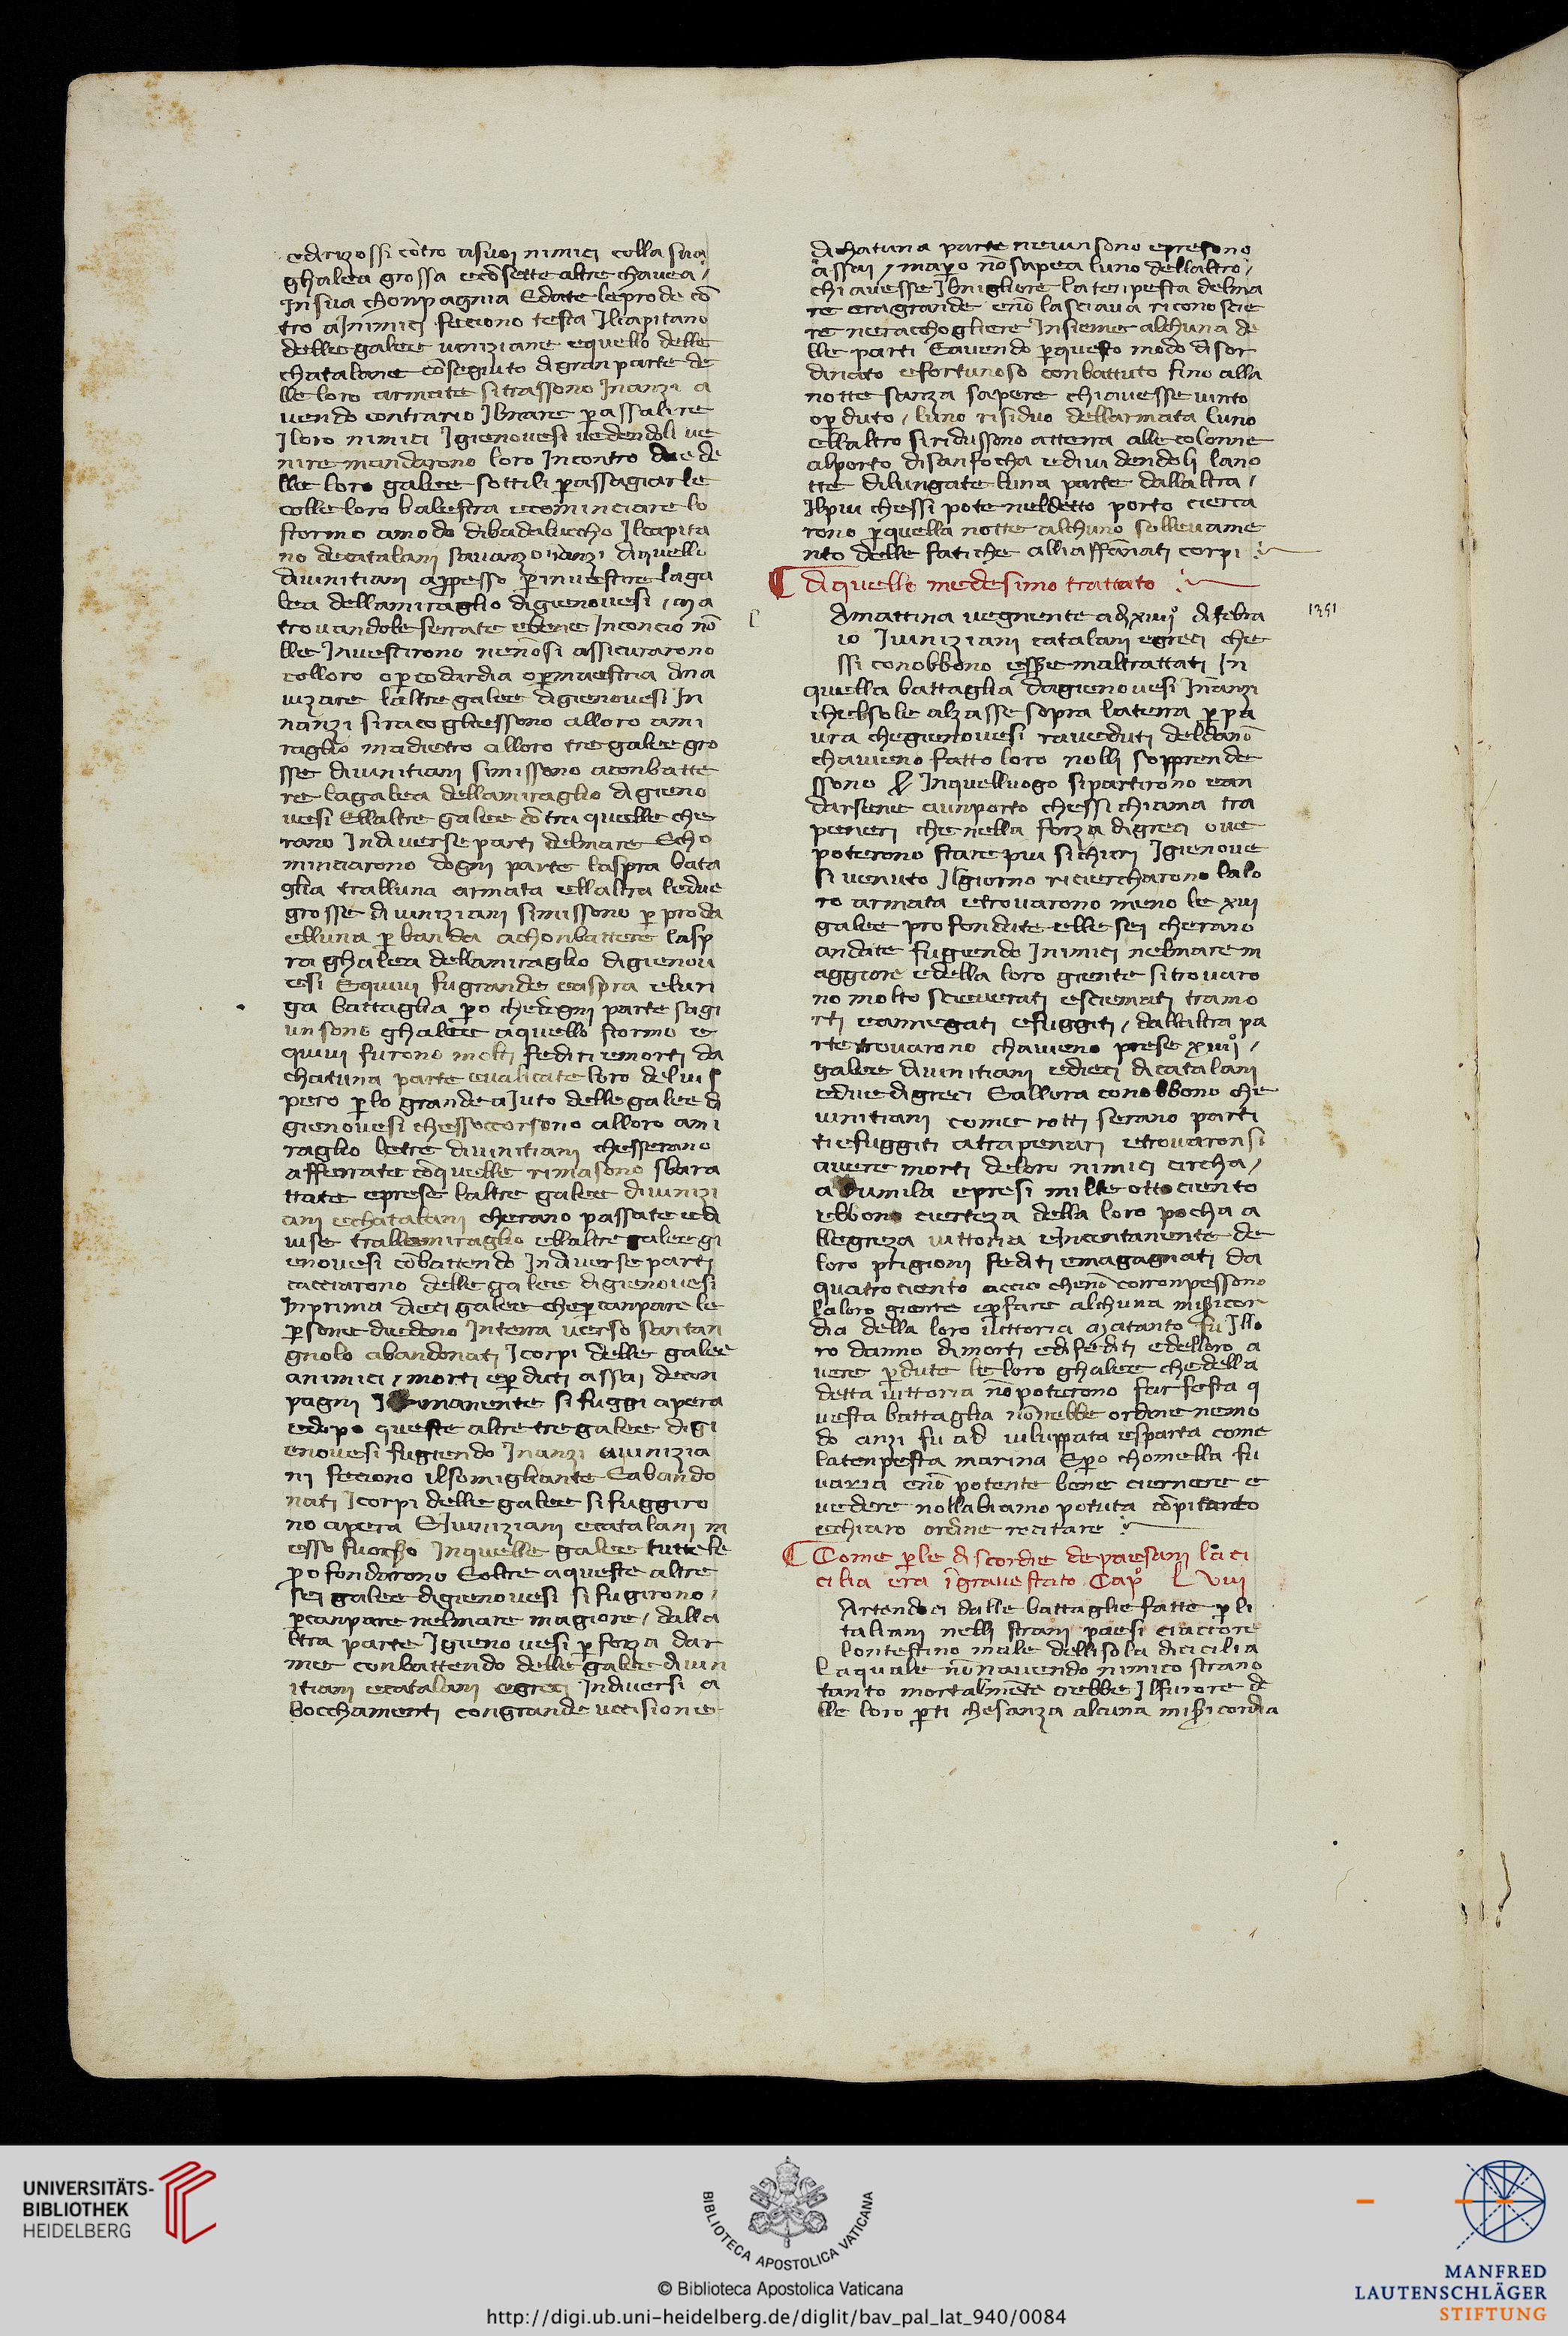 edrizossi cōtro asuoi nimici colla sua
ghalea grossa ecōsette altre chavea /
Insua chonpagnia Edate leprode cō
tro aJnimici feciono testa Ilcapitano
delle galee viniziane equello delle
chatalane cōseguito digran parte de
lle loro armate sitrassono Jnanzi a
vendo contrario Ilmare passalire
Jloro nimici Igienovesi vedendoli ve
nire mandarono loro Incontro due de
lle loro galee sottili passagiarle
colle loro balestra ecominciare lo
stormo amodo dibadaluccho Ilcapita
no decatalani savanzo inanzi diquello
divinitiani appesso pinvestire laga
lea dellamiraglio digienovesi / ma
trovandole serrate ebene Inconcio nō
lle Investirono nenosi assicurarono
colloro opcodardia opmaestria dina
vizare laltre galee digienovesi In
nanzi siracogliessono alloro ami
raglio madietro alloro tre galee gro
sse divinitiani simissono aconbatte
re lagalea dellamiraglio digieno
vesi Ellaltre galee cōtra quelle che
rano Indiverse parti delmare Echo
minciarono dogni parte laspra bata
glia tralluna armata ellaltra ledue
grosse diviniziani simissono p proda
elluna p banda achonbattere lasp
ra ghalea dellamiraglio digienov
esi Equivi fu grande easpra elun
ga battaglia po chedogni parte sagi
unsono ghalee aquello stormo e
quivi furono molti fediti emorti da
chatuna parte evalicate loro deluis
pero plo grande aJuto delle galee di
gienovesi chessoccorsono alloro ami
raglio letre divinitiani chesserano
afferrate cōquelle rimasono sbara
ttate eprese laltre galee divinizi
ani echatalani cherano passate edi
vise trallamiraglio ellaltre galee gi
enovesi cōbattendo Indiverse parti
cacciarono delle galee digienovesi
Inprima dieci galee chepcanpare le
psone diedono Interra verso santan
gnolo abandonati Icorpi delle galee
animici / morti epduti assai decon
pagni manente si fuggi apera
edopo queste altre tregalee digi
enovesi fugiendo Inanzi aivinizia
ni feciono ilsomigliante Eabando
nati Icorpi delle galee si fuggiro
no apera EJviniziani ecatalani m
esso fuocho Inquelle galee tutte le
pofondarono Eoltre aqueste altre
sei galee digienovesi si fugirono /
pcanpare nelmare magiore / dalla
ltra parte Igieno vesi pforza dar
me conbattendo delle galee divin
itiani ecatalani egreci Indiversi a
bocchamenti congrande uccisione
dichatuna parte nevinsono epresono
assai / mapo nōsapea luno dellaltro /
chi avesse Ilmigliore latenpesta delma
re eragrande enō lasciava riconoscie
re neracchogliere Insieme alchuna de
lle parti Eavendo pquesto modo disor
dinato efortunoso conbattuto fino alla
notte sanza sapere chiavesse vinto
opduto / luno risiduo dellarmata luno
ellaltro siridussono atterra alle colonne
alporto disanfocha edividendoli lano
tte dilungate luna parte dallaltra /
Ilpiu chessi pote neldetto porto cierca
rono pquella notte alchuno sollevame
nto delle fatiche alliaffānati corpi
Diquello medesimo trattato
Amattina vegnente adi xiiij° difebra
io Iviniziani catalani egreci che
ssi conobbono essere maltrattati In
quella battaglia dagienovesi Inanzi
chelsole alzasse sopra laterra ppa
ura chegienovesi raveduti deldāno
chavieno fatto loro nolli soprende
ssono Inquelluogo sipartirono ean
darsene aunporto chessi chiama tra
peneri che nella forza digreci ove
poterono stare piu sichuri Igienove
si venuto Ilgiorno riciercharono lalo
ro armata etrovarono meno le xiii
galee profondate elle sei cherano
andate fugiendo Inimici nelmare m
aggiore edella loro giente sitrovaro
no molto scieverati esciemati tramo
rti eannegati efuggiti / dallaltra pa
rte trovarono chavieno prese xiiij° /
galee divinitiani edieci dicatalani
edue digreci Eallora conobbono che
vinitiani come rotti serano parti
tiefuggiti atrapenari etrovaronsi
avere morti deloro nimici circha /
a dumila epresi mille ottociento
ebbono cierteza della loro pocha a
llegreza vittoria eIncontanente de
loro prigioni fediti emagagnati da
quatrociento accio chenō coronpessono
laloro giente epfare alchuna misicor
dia della loro vittoria Matanto fu Illo
ro danno dimorti edifediti edelloro a
vere pdute le loro ghalee chedella
detta vittoria nōpoterono far festa q
uesta battaglia nōnebbe ordine nemo
do anzi fu ad viluppata esparta come
latenpesta marina Epo chomella fu
varia enō potente bene ciernere e
vedere nollabiamo potuta cōpitanto
echiaro ordine recitare
1351
Come ple discordie depaesani laci
cilia era i grave stato Cap° L Viii
Artendoci dalle battaglie fatte pli
taliani nelli strani paesi ciaccore
lontestino male dellisola dicicilia
Laquale nōnavendo nimico strano
tanto mortalmēte crebbe Ilfurore de
lle loro pti chesanza alcuna misicordia
UNIVERSITÄTS-
BIBLIOTHEK
HEIDELBERG
BIBLIOTECA APOSTOLICA VATICANA
© Biblioteca Apostolica Vaticana
http://digi.ub.uni-heidelberg.de/diglit/bav_pal_lat_940/0084
MANFRED
LAUTENSCHLÄGER
STIFTUNG